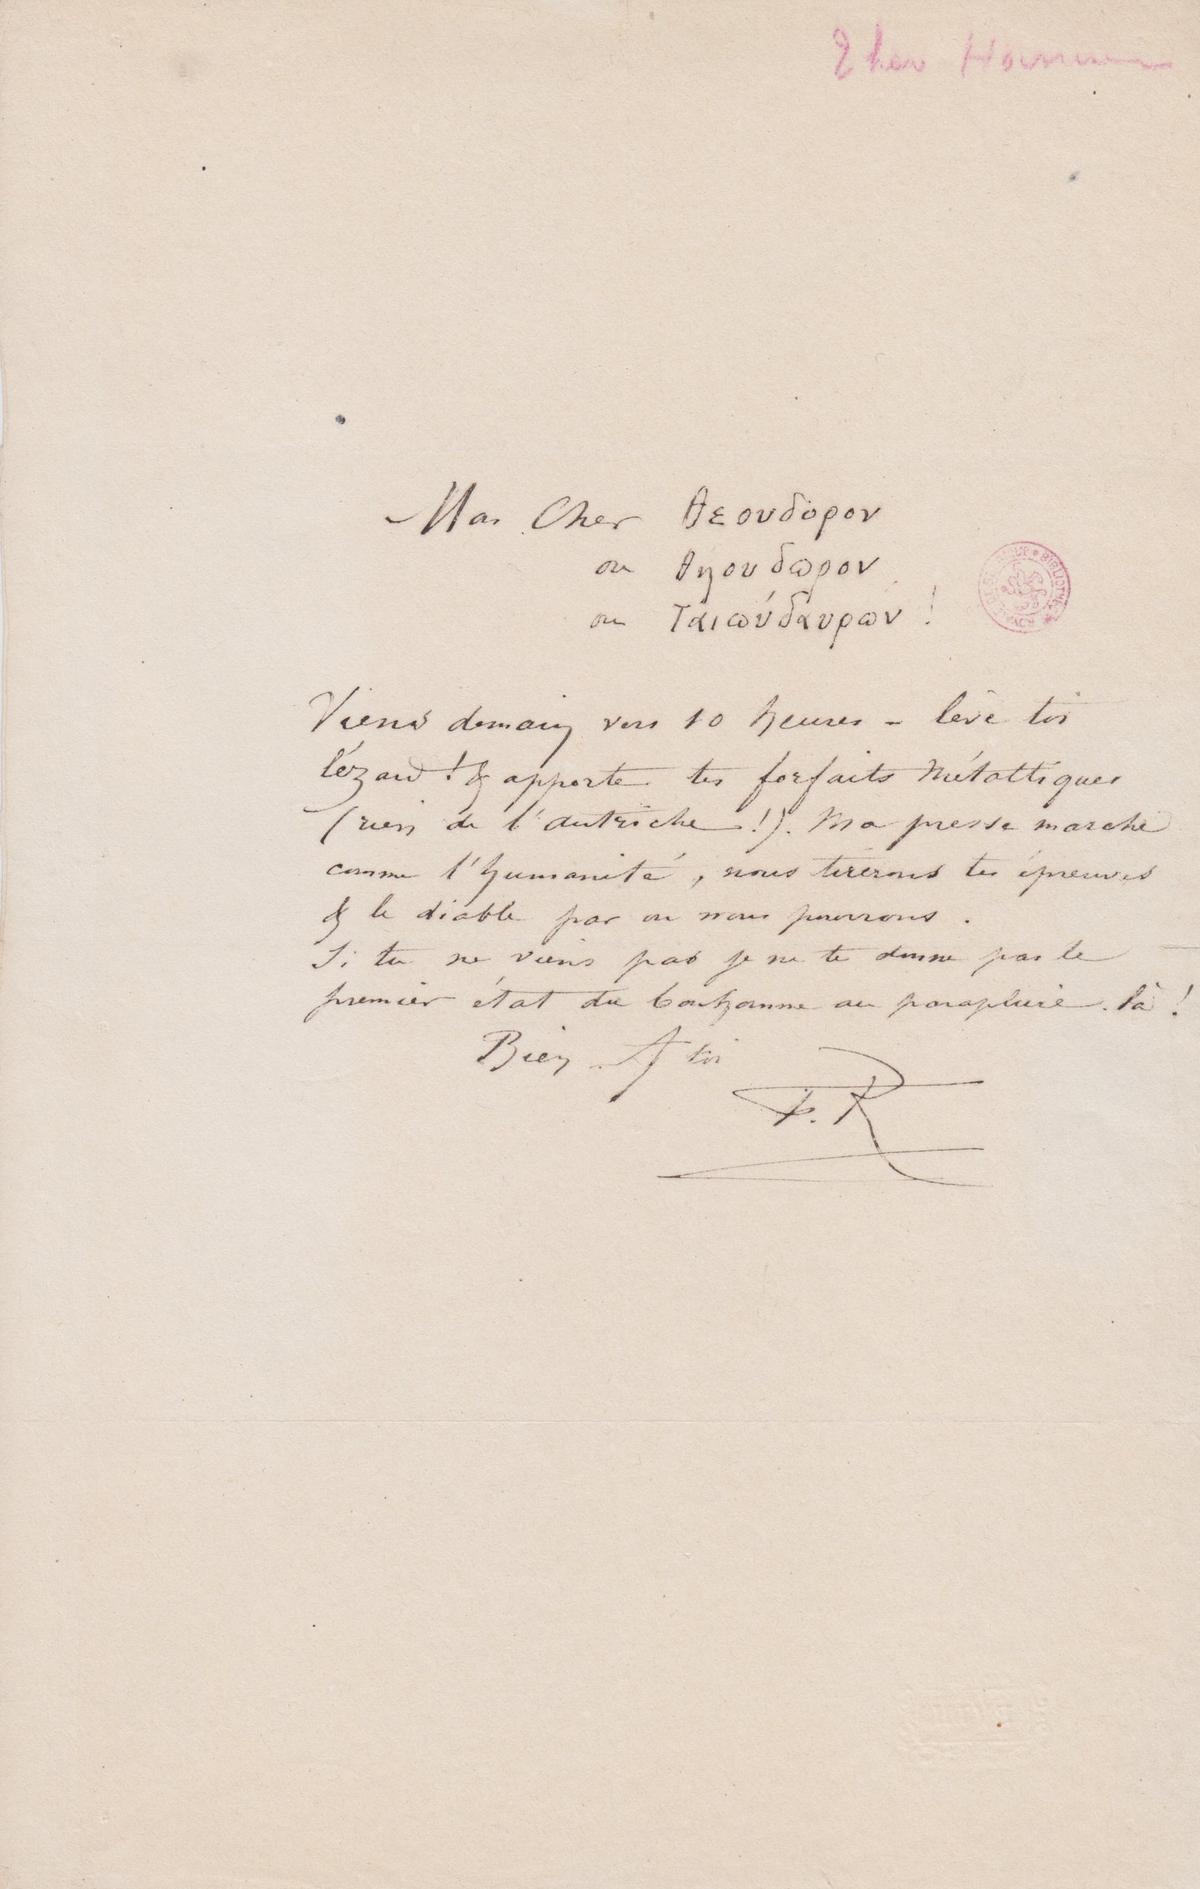 Théo Hannon
Mon Cher Θεουδορον
ou Θηουδωρον
ou Ταιωύδαυρων !
Viens demain vers 10 heures – lève toi
lézard ! & apporte tes forfaits métalliques
(rien de l'autriche !). Ma presse marche
comme l'humanité, nous tirerons tes épreuves
& le diable par où nous pourrons.
Si tu ne viens pas je ne te donne pas le
premier état du bonhomme au parapluie. là !
Bien A toi
F. R